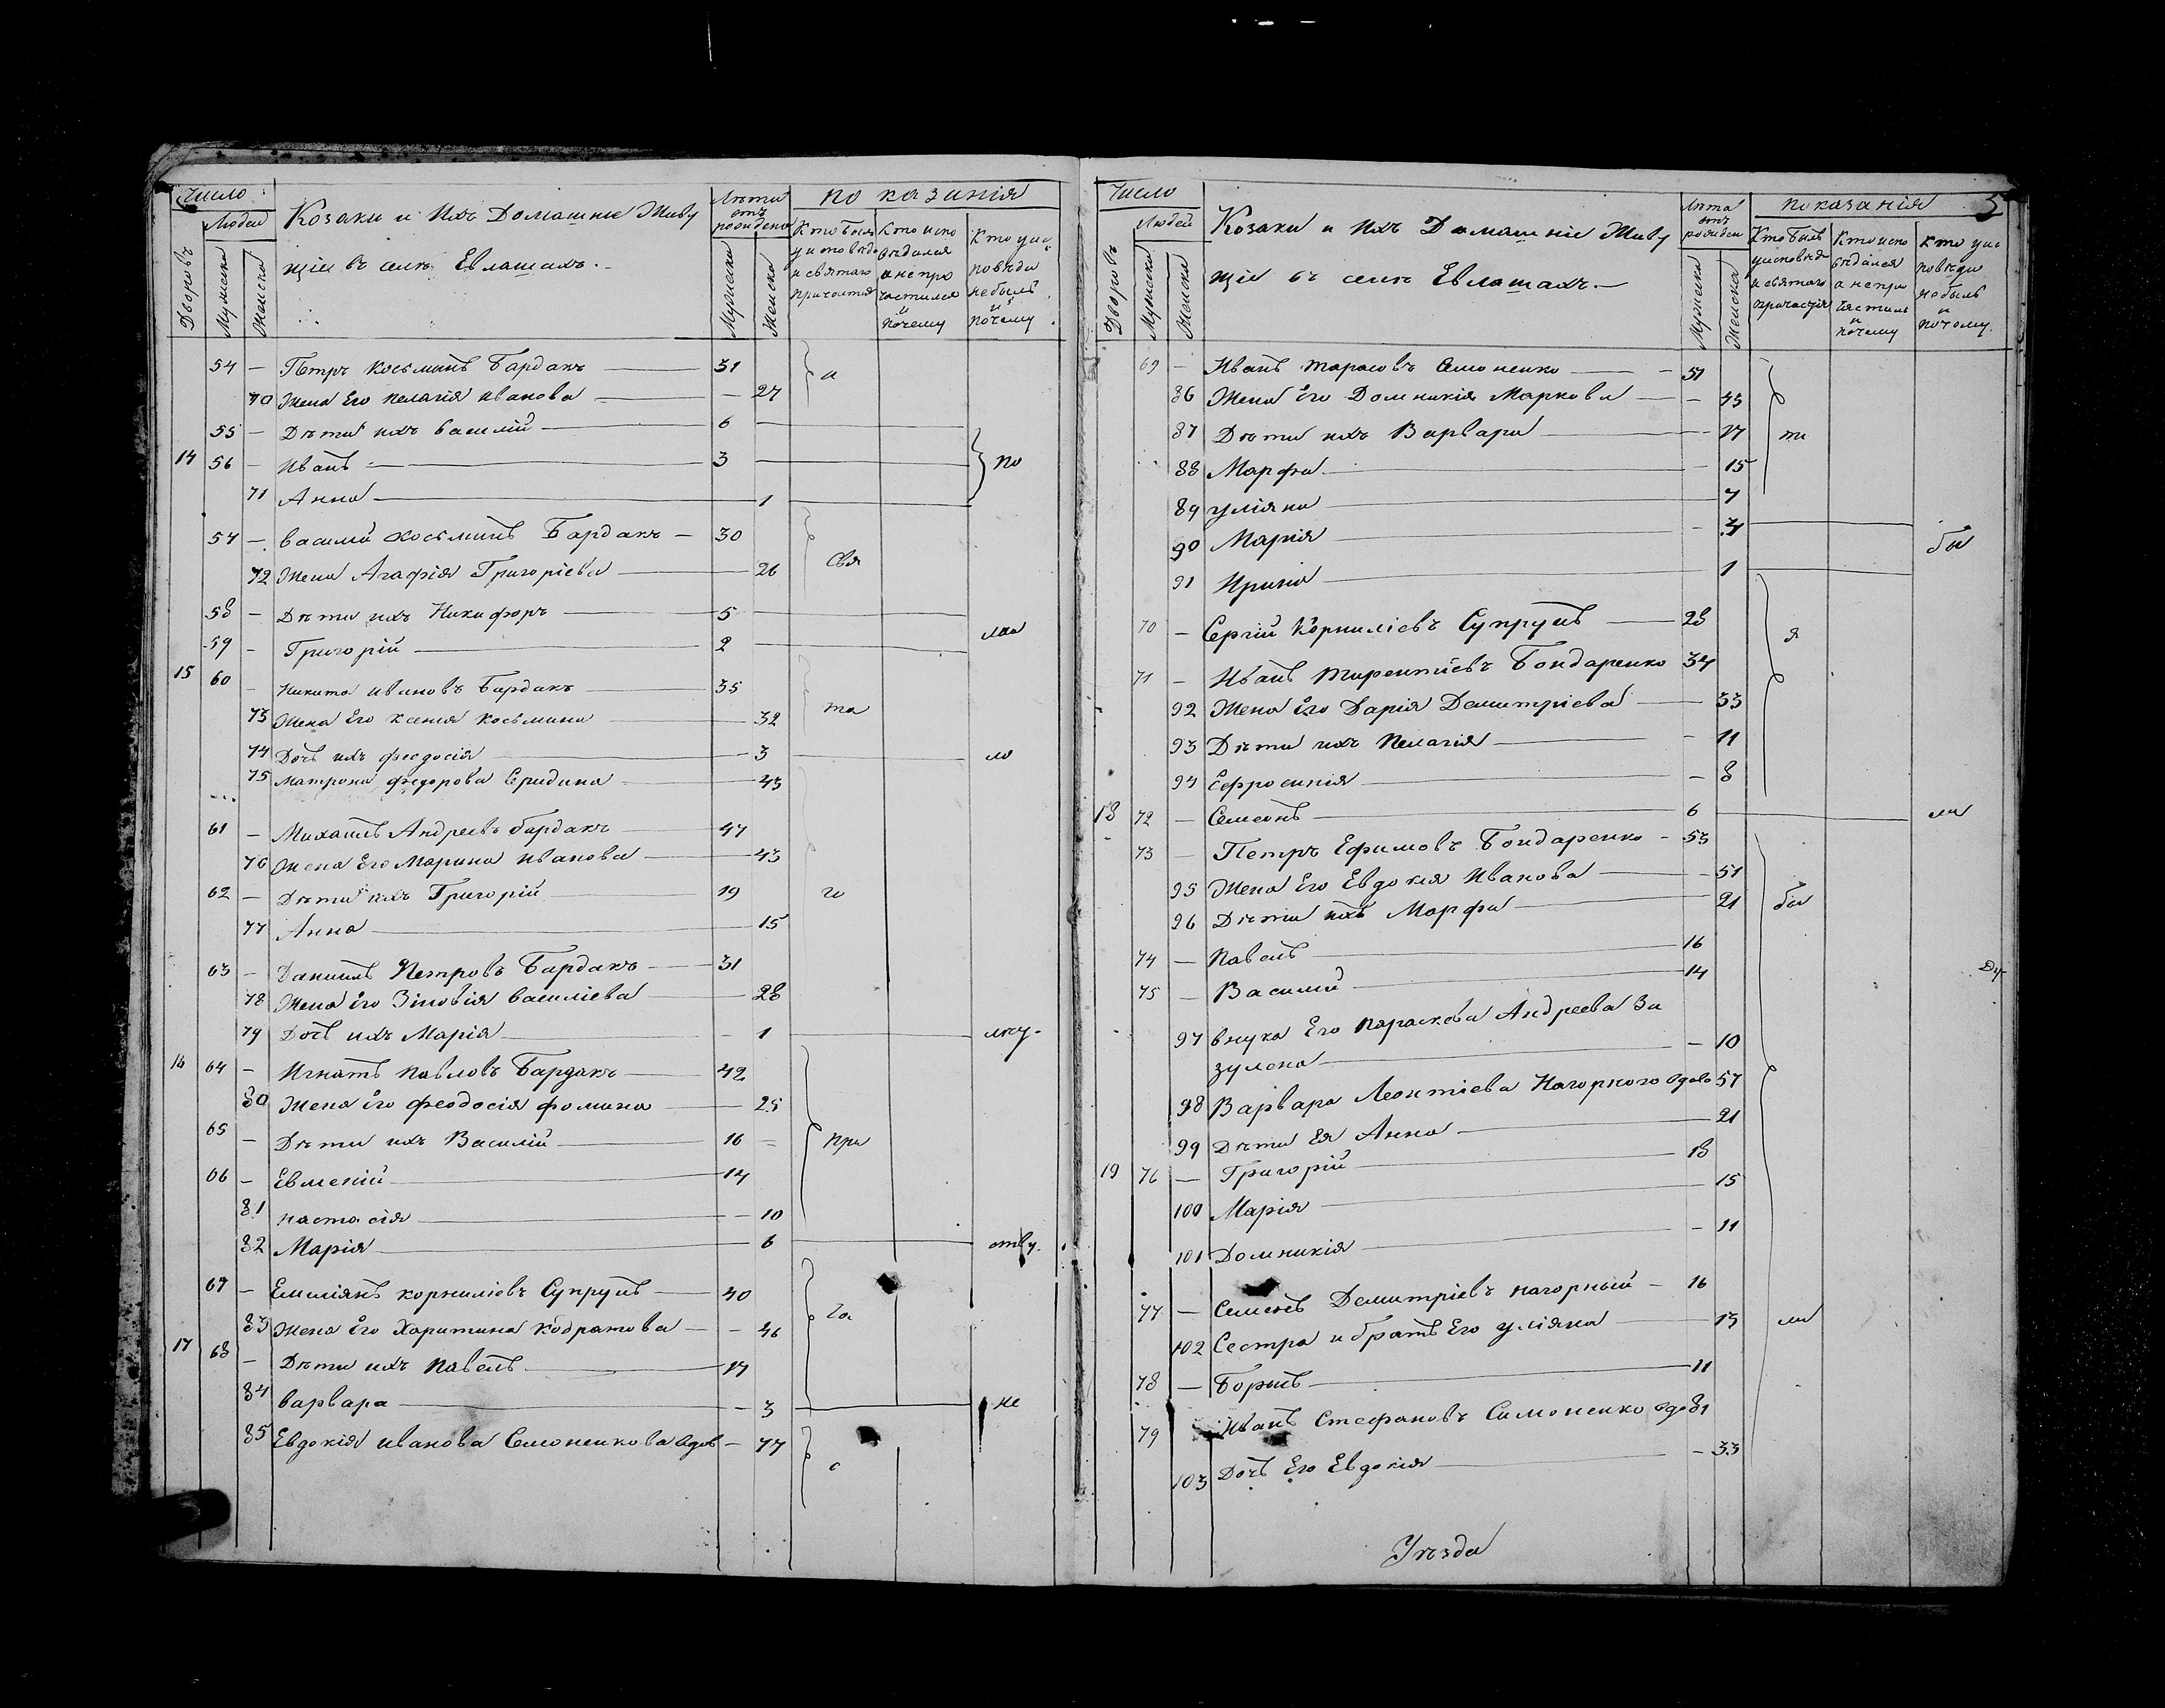 Число
Людей
Дворовъ
Мужеска
Женска
Козаки и Ихъ Домашніе Живу
щіи въ селѣ Евлашахъ.
Лѣта отъ рожденія
Мужеска
Женска
показанія
Кто былъ у исповѣди и святаго причастія
Кто испо вѣдался а непри частился и почему
Кто у ис повѣди небылъ и почему.
54 — Петръ Косьминъ Бардакъ — 31
и
70 Жена Его Пелагія Иванова — 27
55 — Дѣти ихъ Василій — 6
14 56 — Иванъ — 3
по
71 Анна — 1
57 — Василій Косьминъ Бардакъ — 30
72 Жена Агафія Григоріева — 26
Свя
58 — Дѣти ихъ Никифоръ — 5
59 — Григорій — 2
мало
15 60 — Никита Ивановъ Бардакъ — 35
73 Жена Его Ксенія Косьмина — 32
та
74 Дочь ихъ Феодосія — 3
ло
75 Матрона Федорова — 43
61 — Михаилъ Андреевъ Бардакъ — 47
76 Жена Его Марина Иванова — 43
62 — Дѣти ихъ Григорій — 19
го
77 Анна — 15
63 — Даниилъ Петровъ Бардакъ — 31
78 Жена Его Зіновія Василіева — 28
79 Дочь ихъ Марія — 1
лѣт-
16 64 — Игнатъ Павловъ Бардакъ — 42
80 Жена Его Феодосія Фомина — 25
65 — Дѣти ихъ Василій — 16
при
66 — Евмений — 14
81 Настасія — 10
82 Марія — 6
ству.
67 — Емиліянъ Корниліевъ Супрунъ — 40
ча
83 Жена Его Харитина Кодратова — 46
17 68 — Дѣти ихъ Павелъ — 17
84 Варвара — 3
не
85 Евдокія Иванова Симоненкова вдов — 77
с
5
Число
Людей
Дворовъ
Мужеска
Женска
Козаки и Ихъ Домашніе Живу
щіи въ селѣ Евлашахъ.—
Лѣта отъ рожден
Мужеска
Женска
показанія
Кто былъ у исповѣди и святаго причастія
Кто испо вѣдался а непри частилс и почему
Кто у ис повѣди небылъ и почему.
69 — Иванъ Тарасовъ Симоненко — 51
86 Жена Его Домникія Маркова — 43
87 Дѣти ихъ Варвара — 17
ти
88 Марфа — 15
89 Уліяна — 7
90 Марія — 3
бы
91 Ирина — 1
70 — Сергій Корниліевъ Супрунъ — 28
я
71 — Иванъ Тирентіевъ Бондаренко 34
92 Жена Его Дарія Демитріева — 33
93 Дѣти ихъ Пелагія — 11
94 Ефросинія — 8
18 72 — Семеонъ — 6
ли
73 — Петръ Ефимовъ Бондаренко — 53
95 Жена Его Евдокія Иванова — 51
96 Дѣти ихъ Марфа — 21
бы
74 — Павелъ — 16
75 — Василій — 14
97 Внука Его Параскева Андреева За
зулена — 10
98 Варвара Леонтіева Нагорного вдова 57
99 Дѣти Ея Анна — 21
19 76 — Григорій — 18
100 Марія — 15
101 Домникія — 11
77 — Семенъ Демитріевъ Нагорный — 16
102 Сестра и братъ Его Уліяна — 13
ли
78 — Борысъ — 11
79 Иванъ Стефановъ Симоненко вдов 81
103 Дочь Его Евдокія — 33
Уѣзда